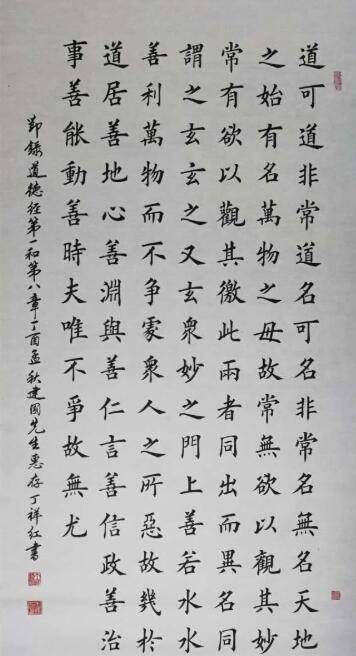 道可道非常道名可名非常名無名天地
之始有名萬物之母故常無欲以觀其妙
常有欲以觀其徼此兩者同出而異名同
謂之玄玄之又玄衆妙之門上善若水水
善利萬物而不争處衆人之所惡故幾於
道居善地心善淵與善仁言善信政善治
事善能動善時夫唯不爭故無尤
節錄道德经第一和第八章丁酉孟秋建國先生惠存丁祥红書